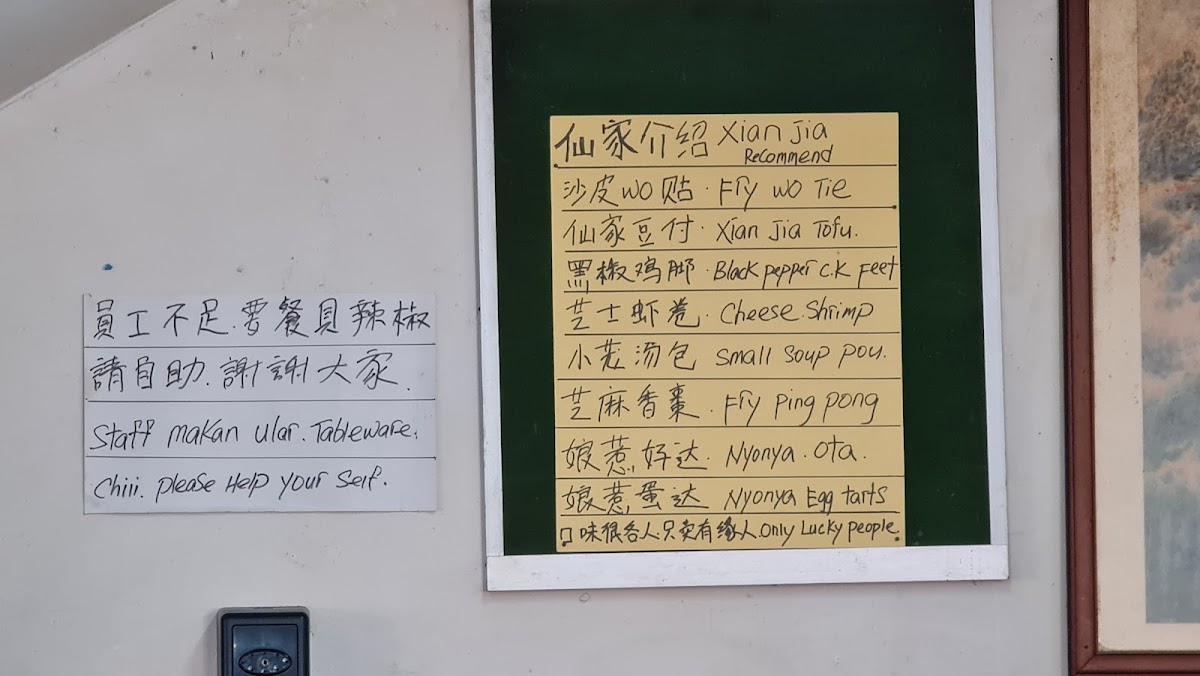 員工不足.要餐具辣椒
請自助.謝謝大家.
Staff makan ular. Tableware.
Chiii. please Help your Self.
仙家介绍 Xian Jia
Recommend
沙皮WO贴·Fry WO Tie
仙家豆付·Xian Jia Tofu.
黑椒鸡脚·Black pepper C.K Feet
芝士虾卷·Cheese Shrimp
小笼汤包 Small Soup pou.
芝麻香棗·Fry ping pong
娘惹好达·Nyonya·Ota.
娘惹蛋达 Nyonya Egg tarts
口味很各人.只卖有缘人.Only Lucky people